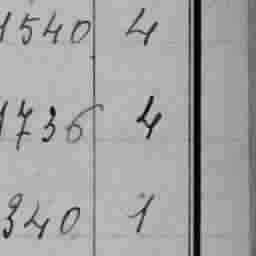 1540 4
1736 4
340 1